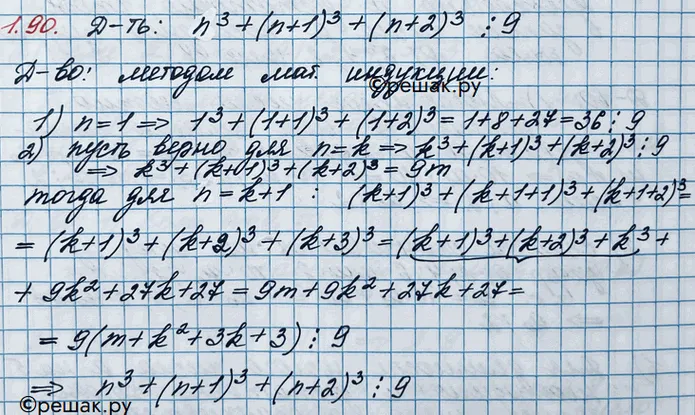 1.90. Д-ть: n³ + (n+1)³ + (n+2)³ ⋮ 9
Д-во: методом мат. индукции:
©решак.ру
1) n=1 ⇒ 1³ + (1+1)³ + (1+2)³ = 1+8+27 = 36 ⋮ 9
2) пусть верно для n=k ⇒ k³ + (k+1)³ + (k+2)³ ⋮ 9
⇒ k³ + (k+1)³ + (k+2)³ = 9m
тогда для n=k+1 : (k+1)³ + (k+1+1)³ + (k+1+2)³ =
= (k+1)³ + (k+2)³ + (k+3)³ = (k+1)³ + (k+2)³ + k³ +
+ 9k² + 27k + 27 = 9m + 9k² + 27k + 27 =
= 9(m + k² + 3k + 3) ⋮ 9
⇒ n³ + (n+1)³ + (n+2)³ ⋮ 9
©решак.ру